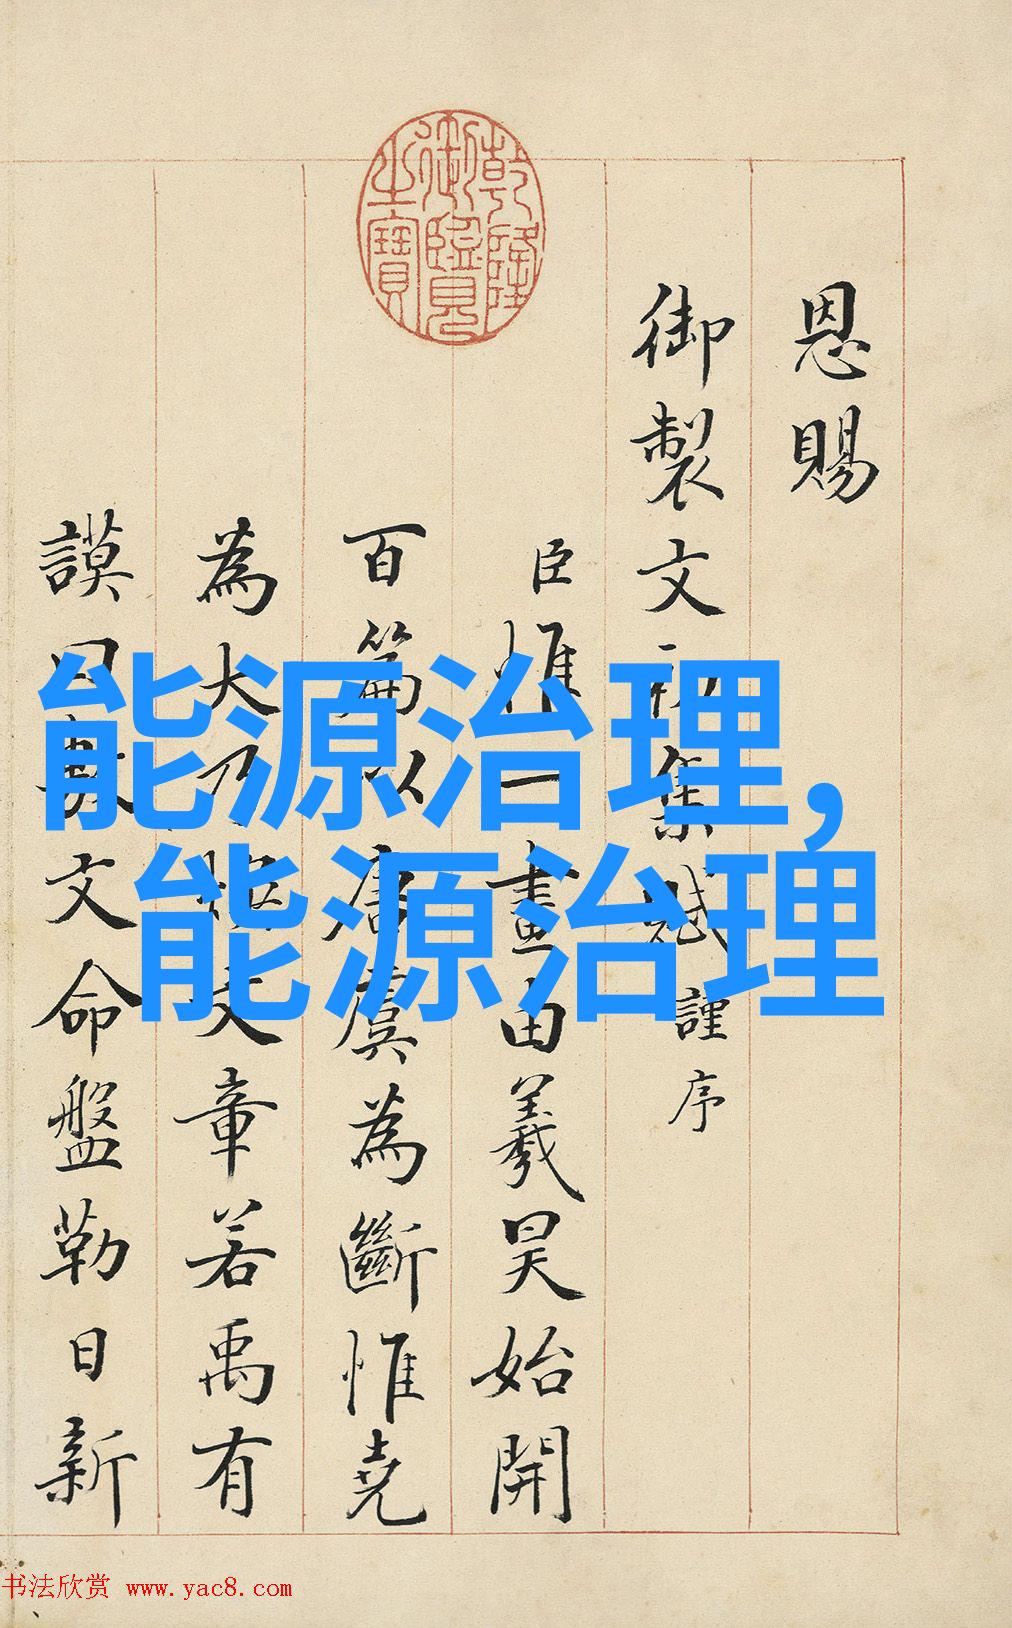 恩賜
御製文初集賦謹序
臣惟一畫由羲昊始開
百篇以唐虞為斷惟堯
為大乃文章若禹有
謨曰敷文命盤勒日新
乾隆御覽之寶
能源治理,
能源治理
书法欣赏 www.yac8.com